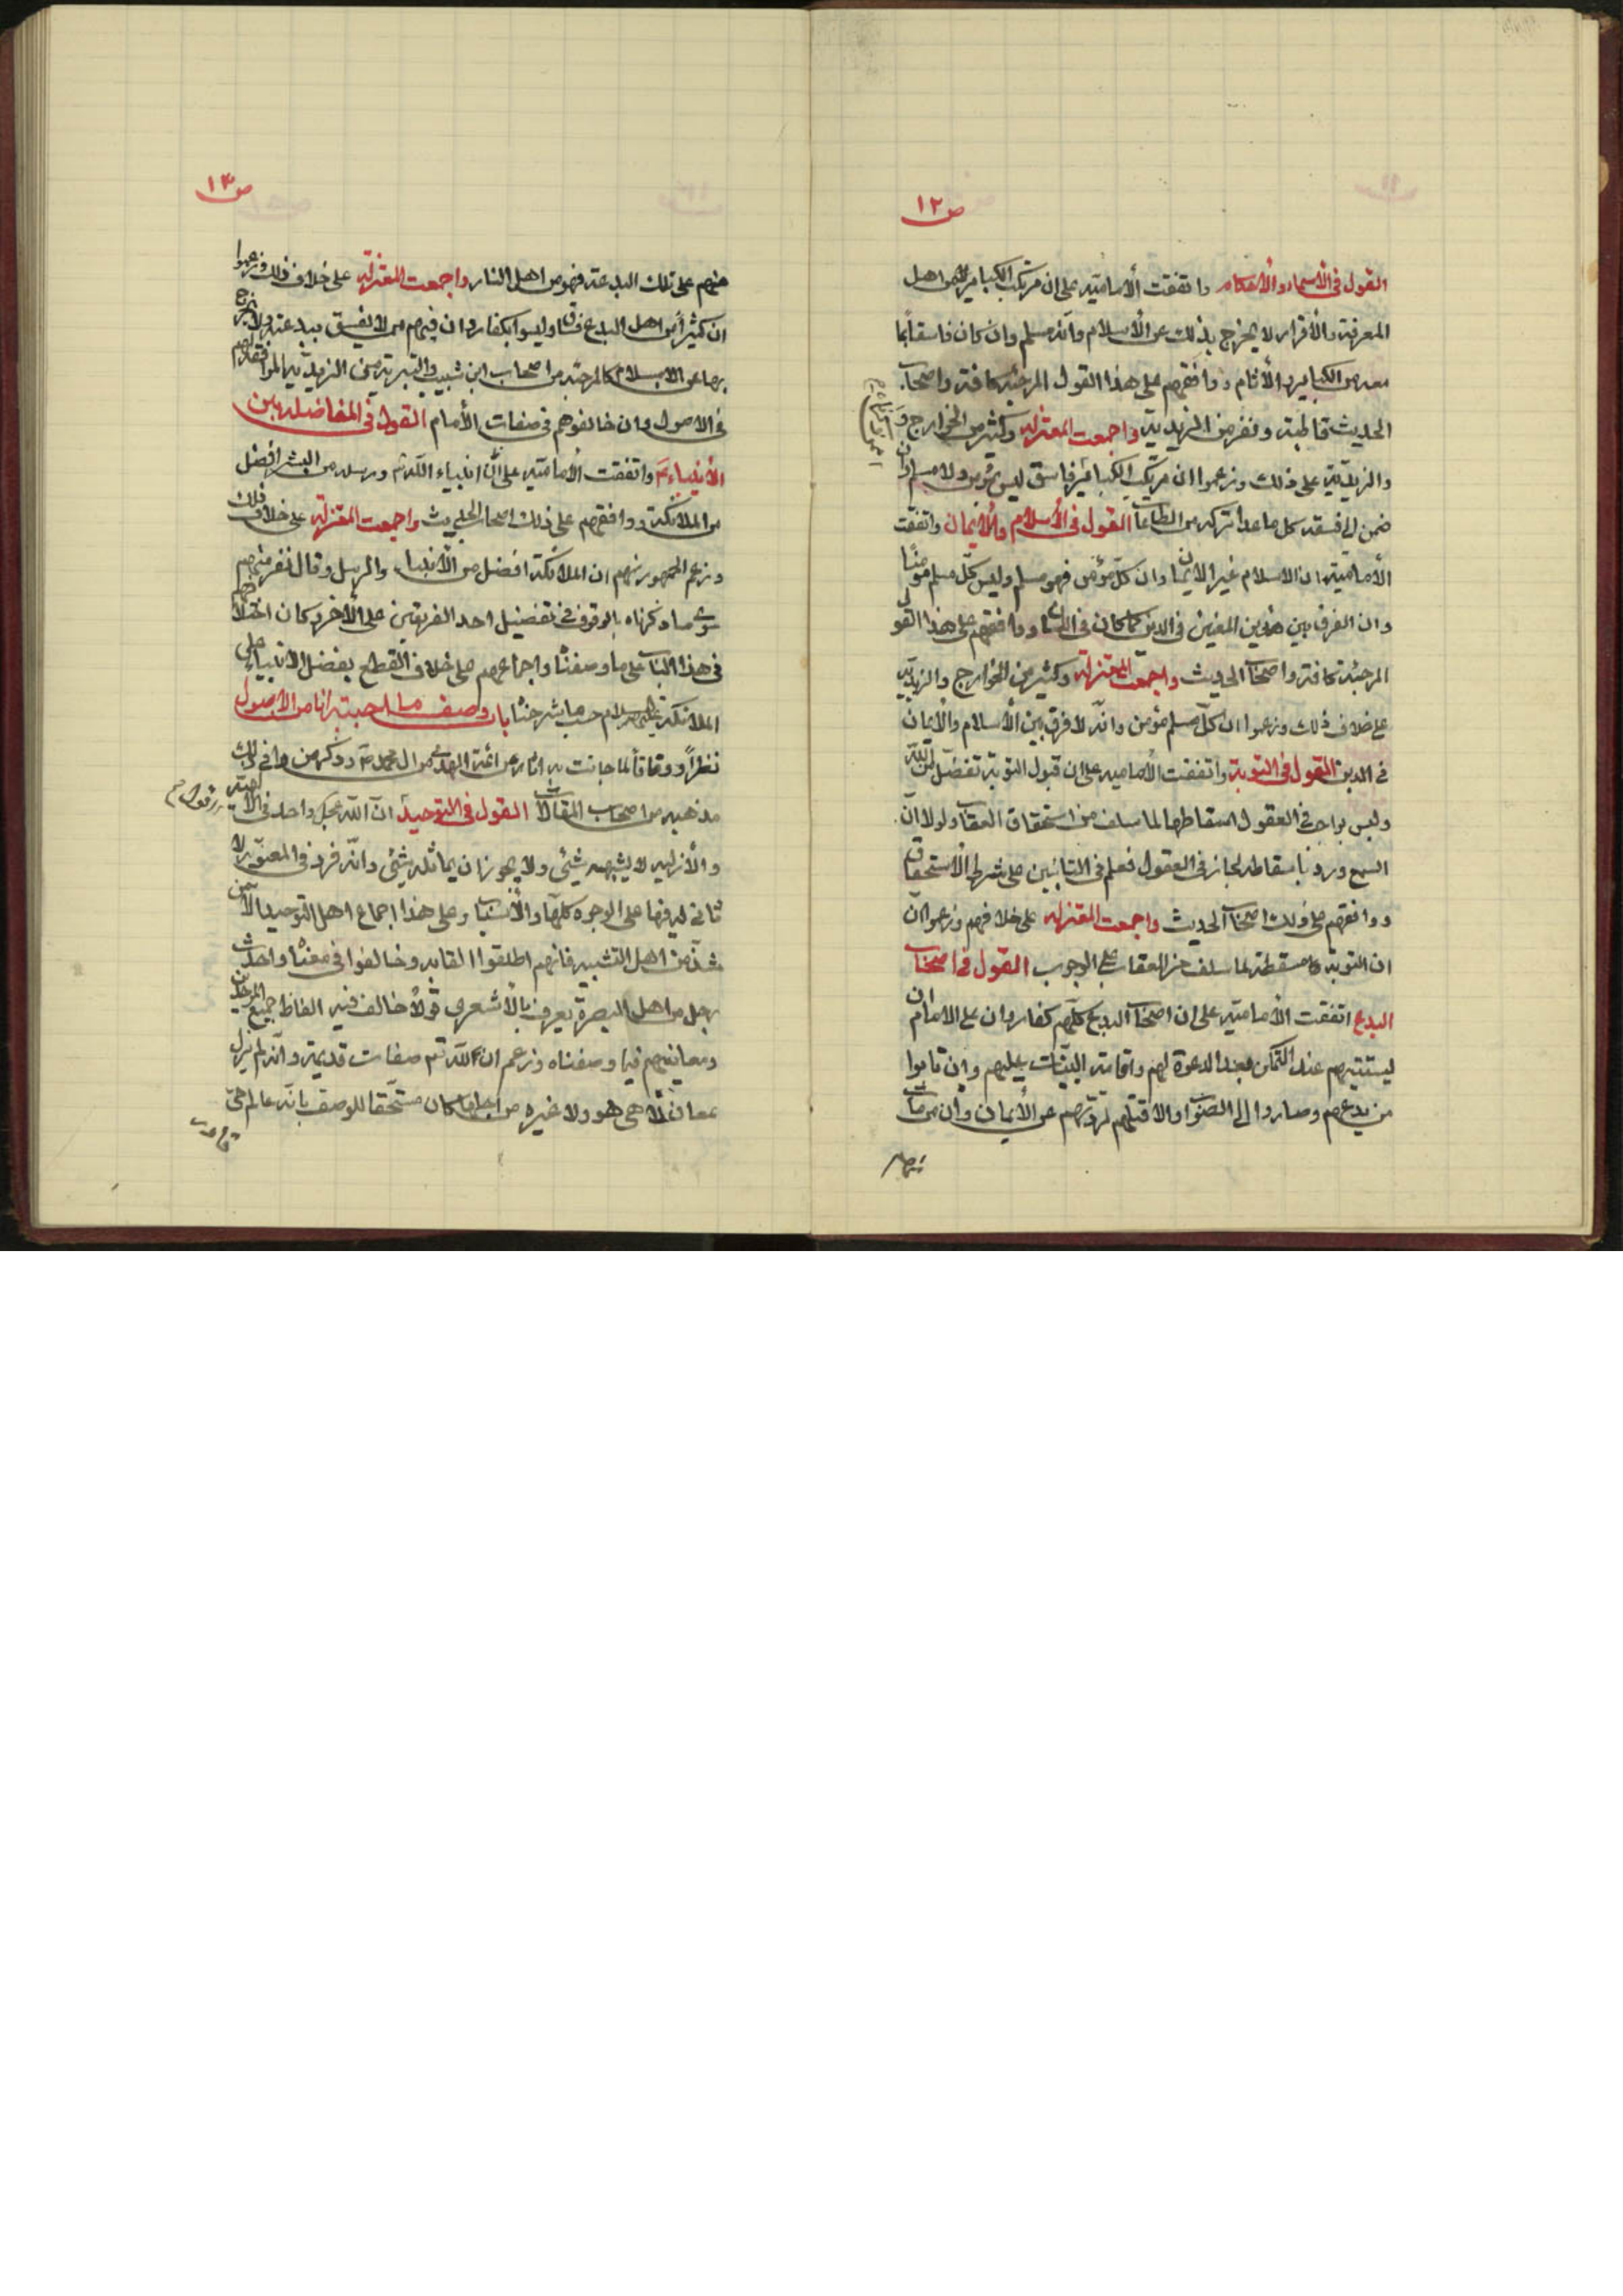 ص ١٢
القول في الأسماء والأحكام واتفقت الأمامية على ان مرتكب الكباير من اهل
المعرفة والأقرار لا يخرج بذلك عن الأسلام وانه مسلم وان كان فاسقا بما
معه من الكباير والأثام ووافقهم على هذا القول المرجئة كافة واصحاب
الحديث قاطبة ونفر من الزيدية واجمعت المعتزلة وكثير من الخوارج
والزيدية على ذلك وزعموا ان مرتكب الكبائر فاسق ليس بمؤمن ولا مسلم وان
ضمن الى فسقه كل ما عدا تركه من الطاعات القول في الأسلام والأيمان واتفقت
الأمامية ان الاسلام غير الايمان وان كل مؤمن فهو مسلم وليس كل مسلم مؤمنا
وان الفرق بين هذين المعنيين في الدين كما كان في اللسان ووافقهم على هذا القول
المرجئة كافة واصحاب الحديث واجمعت المعتزلة وكثير من الخوارج والزيدية
على خلاف ذلك وزعموا ان كل مسلم مؤمن وانه لا فرق بين الأسلام والأيمان
في الدين القول في التوبة واتفقت الأمامية على ان قبول التوبة تفضل من الله
وليس بواجب في العقول اسقاطها لما سلف من استحقاق العقاب ولولا ان
السمع ورد باسقاطه لجاز في العقول فعلم في التائبين على شرط الأستحقاق
ووافقهم على ذلك اصحاب الحديث واجمعت المعتزلة على خلافهم وزعموا ان
ان التوبة مسقطة لما سلف من العقاب على الوجوب القول في اصحاب
البدع اتفقت الأمامية على ان اصحاب البدع كلهم كفار وان على الامام ان
يستتيبهم عند التمكن بعد الدعوة لهم واقامة البينات عليهم وان تابوا
من بدعهم وصاروا الى الصواب والا قتلهم لردتهم عن الأيمان وان من مات
منهم
ص ١٣
منهم على تلك البدعة فهو من اهل النار واجمعت المعتزلة على خلاف ذلك وزعموا
ان كثيرا من اهل البدع فساق وليسوا بكفار وان فيهم من لا يفسق ببدعته ولا يخرج
بها عن الاسلام كالمرجئة من اصحاب ابن شبيب والتبرية من الزيدية الموافقة لهم
في الاصول وان خالفوهم في صفات الأمام القول في المفاضلة بين
الأنبياء واتفقت الأمامية على ان انبياء الله تع ورسله من البشر افضل
من الملائكة ووافقهم على ذلك اصحاب الحديث واجمعت المعتزلة على خلاف ذلك
وزعم الجمهور منهم ان الملائكة افضل من الأنبياء والرسل وقال نفر منهم
سوى ما ذكرناه بالوقوف في تفضيل احد الفريقين على الأخر وكان اختلافهم
في هذا الباب على ما وصفنا واجماعهم على خلاف القطع بفضل الانبياء على
الملائكة عليهم السلام حسب ما شرحناه باب وصف ما اجتبيته انا من الاصول
نظرا ووفاقا لما جائت به اثار عن ائمة الهدى من ال محمد وذكر من وافق ذلك
مذهبه من اصحاب المقالات القول في التوحيد ان الله عز وجل واحد في الألهية
والأزلية لا يشبهه شيئ ولا يجوز ان يماثله شيئ وانه فرد في المعبودية لا
ثاني له فيها على الوجوه كلها والأسباب وعلى هذا اجماع اهل التوحيد الا من
شذ من اهل التشبيه فانهم اطلقوا الفاظه وخالفوا في معناه واحدث
رجل من اهل البصرة يعرف بالأشعري قولا خالف فيه الفاظ جميع الموحدين
ومعانيهم فيما وصفناه وزعم ان لله تع صفات قديمة وانه لم يزل
بمعان لا هي هو ولا غيره من اجلها كان مستحقا للوصف بانه عالم حي
قادر